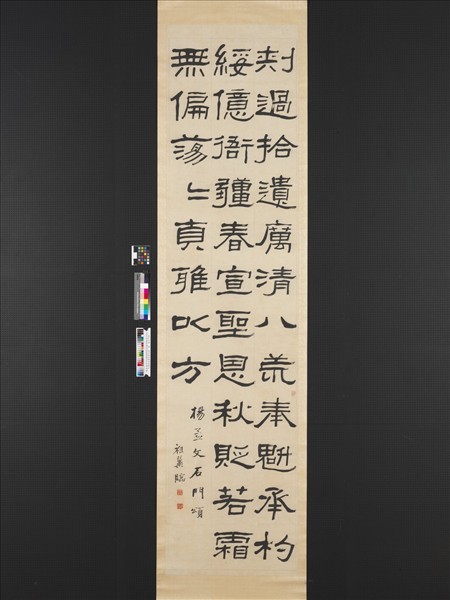 刾過拾遺厲清八荒奉魁承杓
綏億衙彊春宣聖恩秋貶若霜
無偏蕩〻貞雅以方
楊孟文石門頌